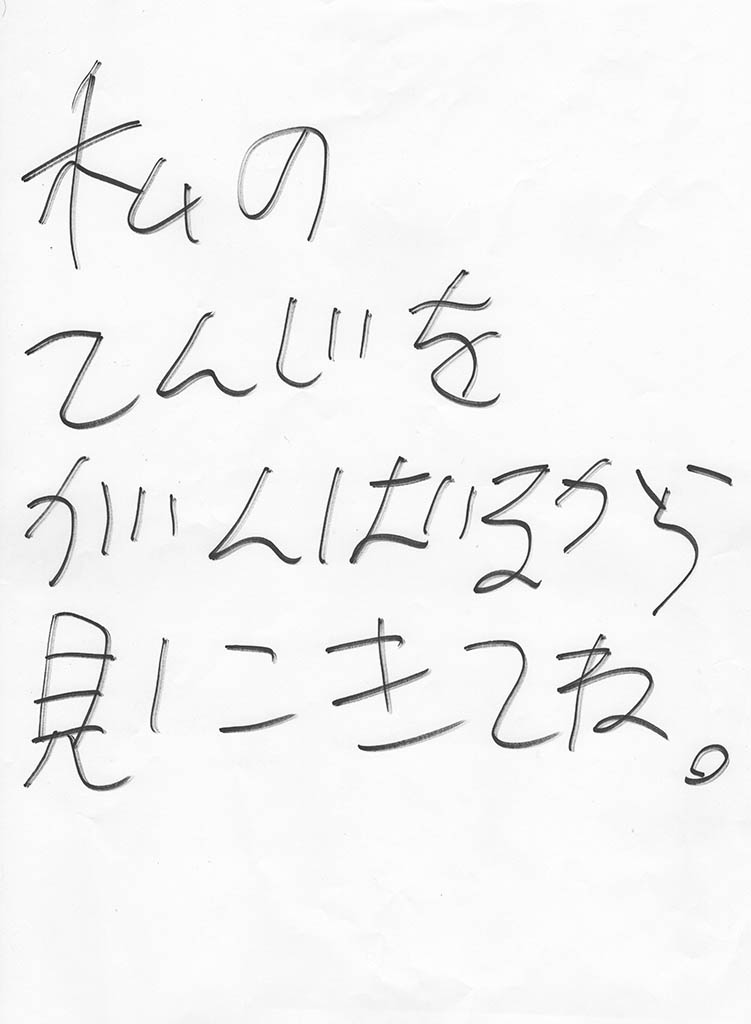 私の
てんじを
がんばるから
見にきてね。